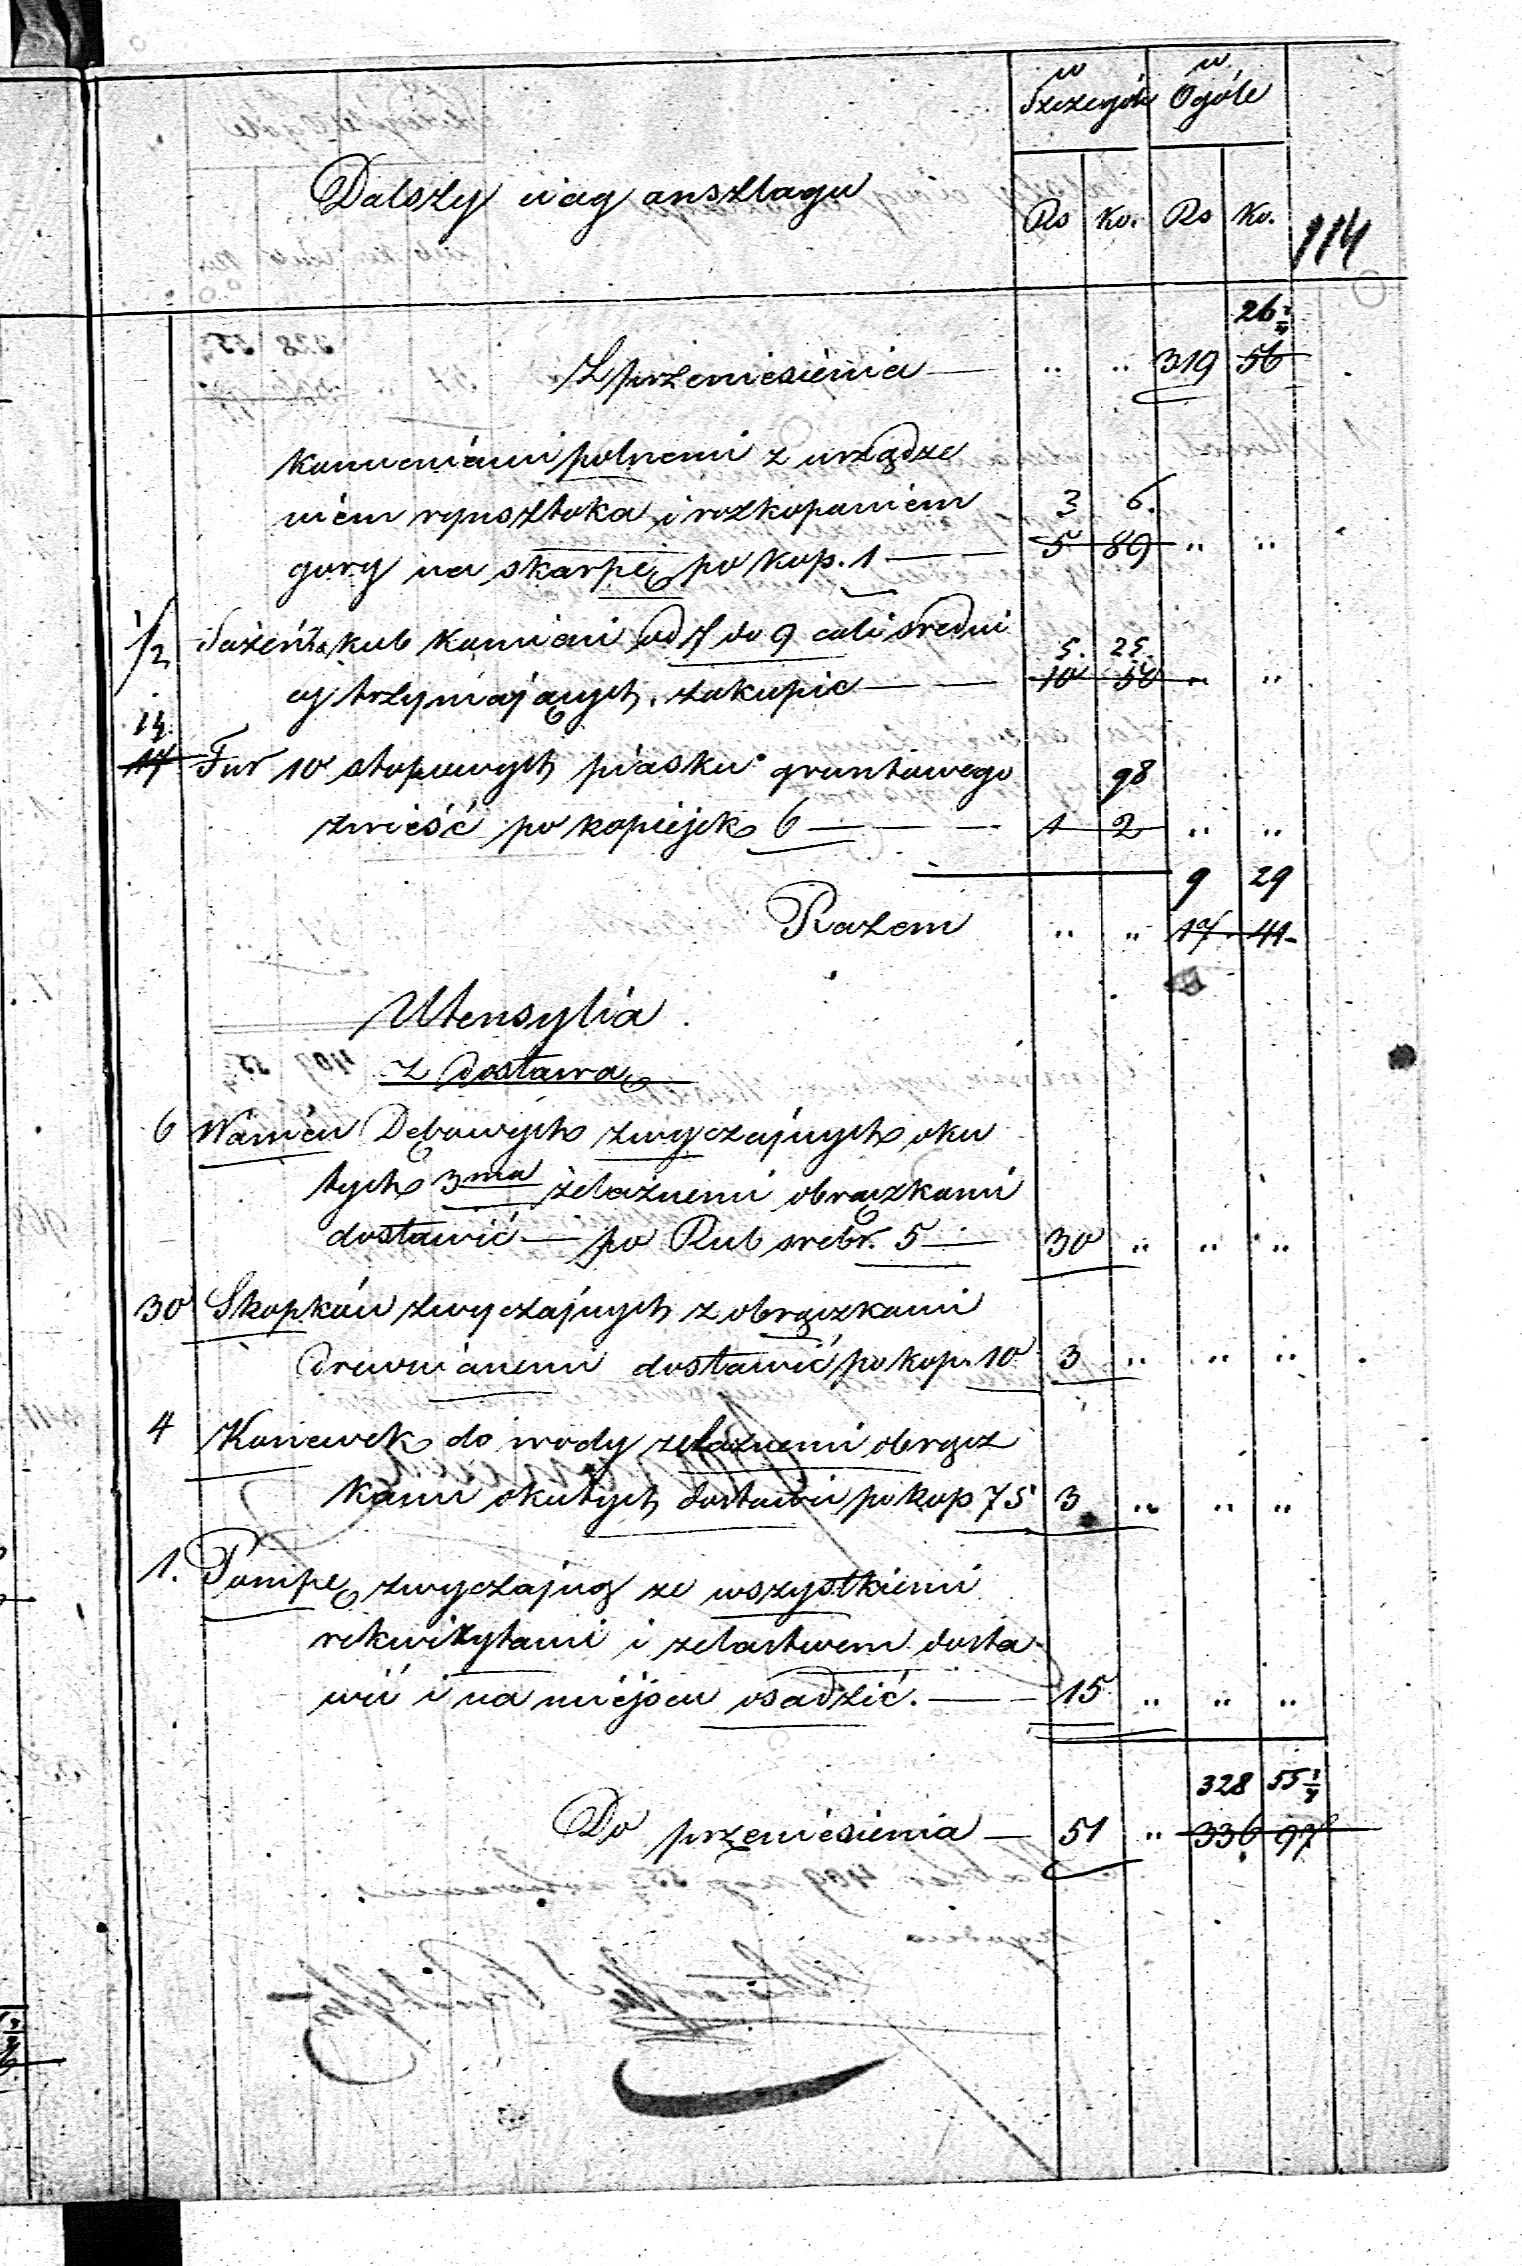 w w
Szczególe Ogóle
Dalszy ciąg anszlagu
Rs Ko. Rs Ko. 114
26 3/4
Z przeniesienia — " " 319 56
Kamieniami polnemi z urządze
niem rynsztoka i rozkopaniem 3 6.
gory na skarpę po kop. 1 — 5 89 " "
1/2 Sążeńka kub kamieni od 7 do 9 cali sredni 5. 25.
cy trzymających, zakupic — 10 50 " "
14.
17 Fur 10 stopowych piasku gruntowego 98
zwieść po kopiejek 6 — 1 2 " "
9 29
Razem " " 17. 41
Utensylia
z dostawą
6 Wanien Dębowych zwyczajnych oku
tych 3ma żelaznemi obrączkami
dostawić — po Rub srebr. 5 — 30 " " "
30 Skopków zwyczajnych z obrączkami
drewnianemi dostawić po kop. 10 3 " " "
4 Konewek do wody żelaznemi obrącz
kami okutych dostawić po kop 75 3 " " "
1. Pompę zwyczajną ze wszystkiemi
rekwizytami i żelastwem dosta
wić i na miejscu osadzić. — 15 " " "
328 55 3/4
Do przeniesienia — 51 " 336 97